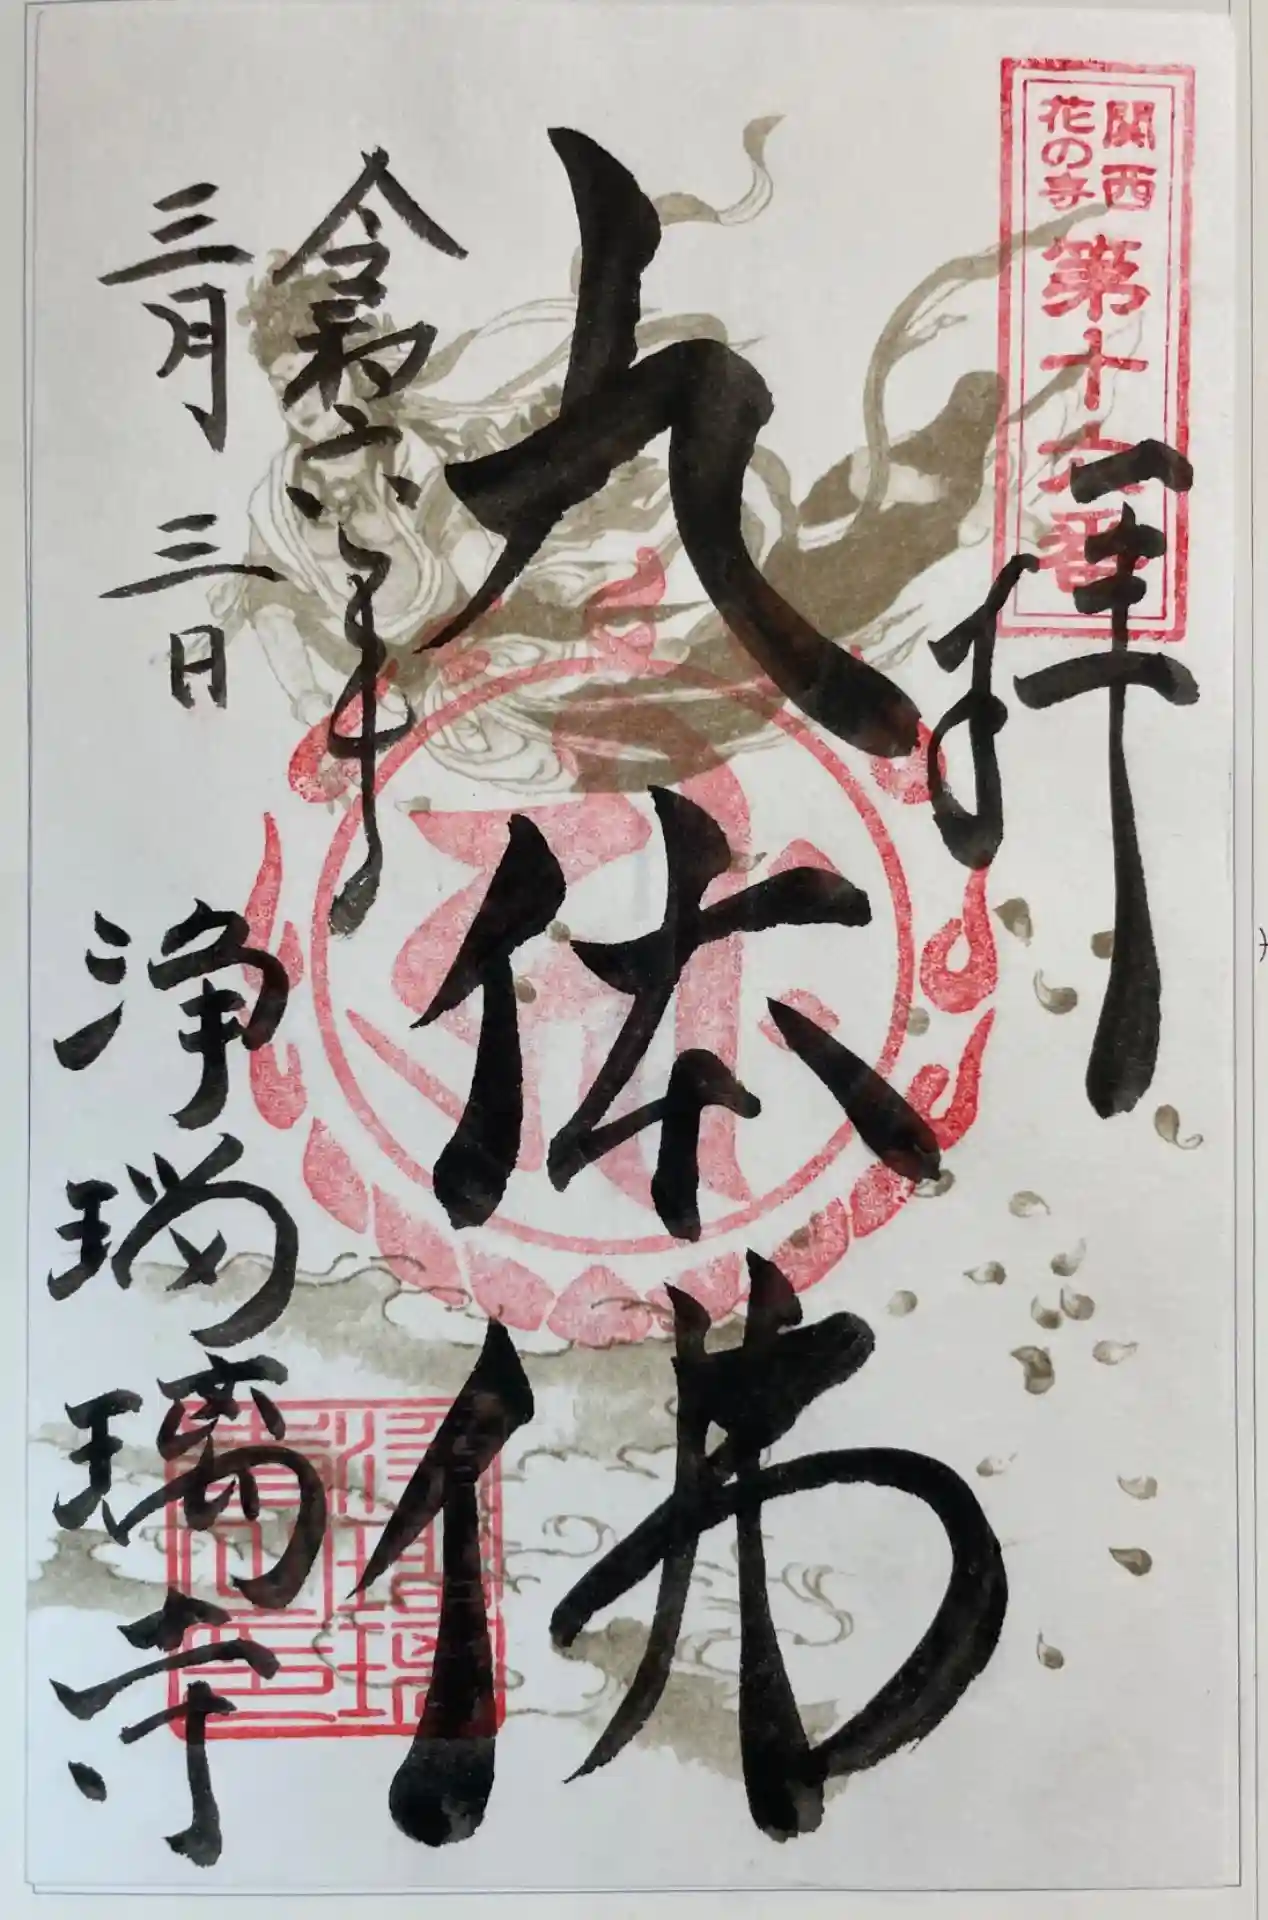 関西
花の寺
第十六番
拝
九体佛
令和六年
三月三日
浄瑠璃寺